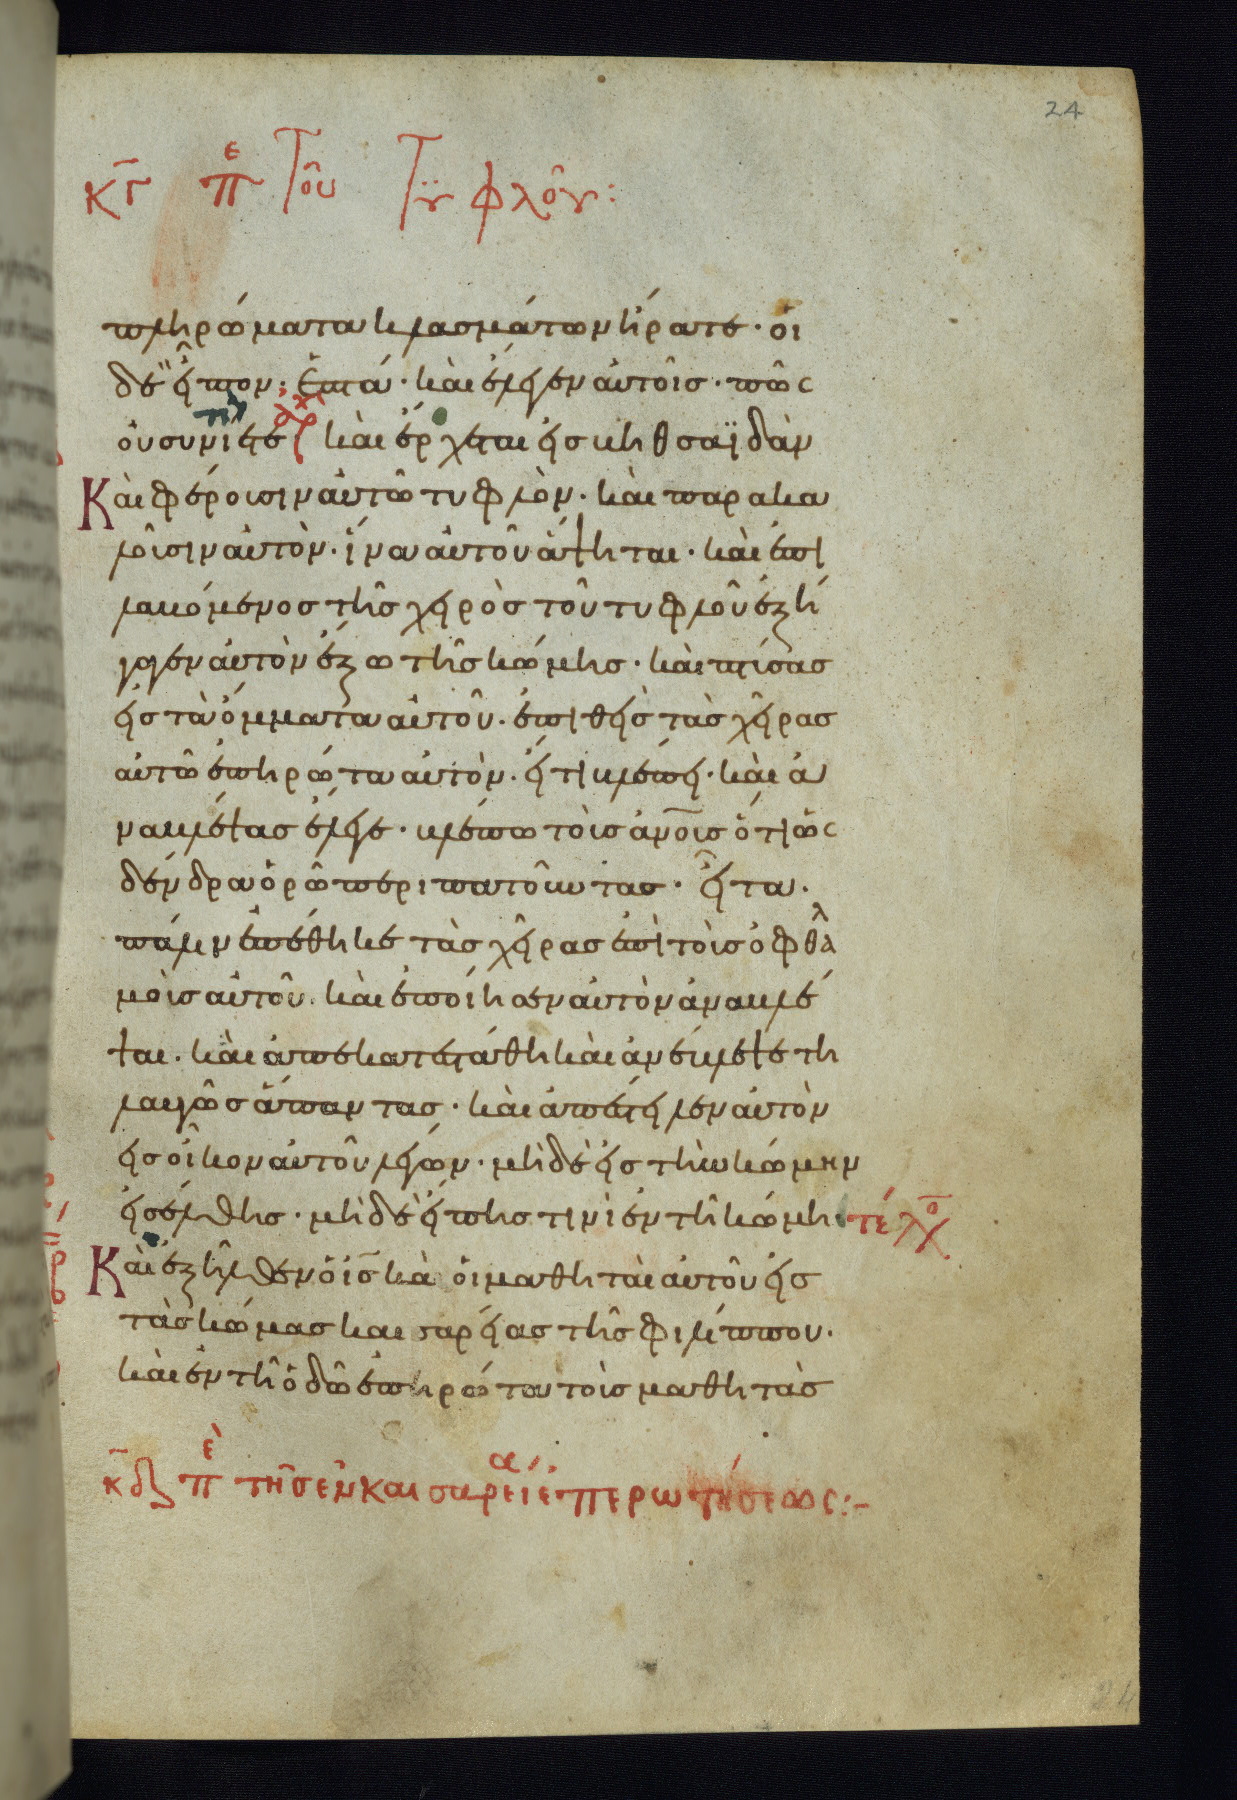 24
κγ πε του τυφλου:
πληρώματα κλασμάτων ἤρατε· οἱ
δὲ εἶπον· ἑπτά· καὶ ἔλεγεν αὐτοῖς· πῶς
οὐ συνίετε καὶ ἔρχεται εἰς βηθσαϊδὰν
Καὶ φέρουσιν αὐτῶ τυφλὸν· καὶ παρακα
λοῦσιν αὐτὸν· ἵνα αὐτοῦ ἅψηται· καὶ ἐπι
λαβόμενος τῆς χειρὸς τοῦ τυφλοῦ ἐξή
γαγεν αὐτὸν ἔξω τῆς κώμης· καὶ πτύσας
εἰς τὰ ὄμματα αὐτοῦ· ἐπιθεὶς τὰς χεῖρας
αὐτῶ ἐπηρώτα αὐτὸν· εἴ τι βλέπει· καὶ ἀ
ναβλέψας ἔλεγε· βλέπω τοὺς ἀνους ὅτι ὡς
δένδρα ὁρῶ περιπατοῦντας· εἶτα·
πάλιν ἐπέθηκε τὰς χεῖρας ἐπὶ τοὺς ὀφθαλ
μοὺς αὐτοῦ· καὶ ἐποίησεν αὐτὸν ἀναβλέ
ψαι· καὶ ἀποκατεστάθη καὶ ἀνέβλεψε τη
λαυγῶς ἅπαντας· καὶ ἀπέστειλεν αὐτὸν
εἰς οἶκον αὐτοῦ λέγων· μὴ δὲ εἰς τὴν κώμην
εἰσέλθης· μὴ δὲ εἴπης τινὶ ἐν τῆ κώμη· τέλο
Καὶ ἐξῆλθεν ὁ ις καὶ οἱ μαθηταὶ αὐτοῦ εἰς
τὰς κώμας καισαρείας τῆς φιλίππου·
καὶ ἐν τῆ ὁδῶ ἐπηρώτα τοὺς μαθητὰς
κδ πε τῆς ἐν καισαρείᾳ ἐπερωτήσεως:-
24